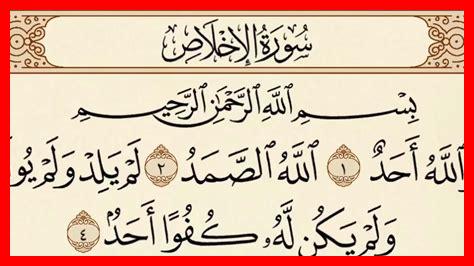 سُورَةُ الإِخْلَاصِ
بِسْمِ ٱللَّهِ ٱلرَّحْمَٰنِ ٱلرَّحِيمِ
ٱللَّهُ أَحَدٌ ١ ٱللَّهُ ٱلصَّمَدُ ٢ لَمْ يَلِدْ وَلَمْ يُو
وَلَمْ يَكُن لَّهُۥ كُفُوًا أَحَدٌۢ ٤